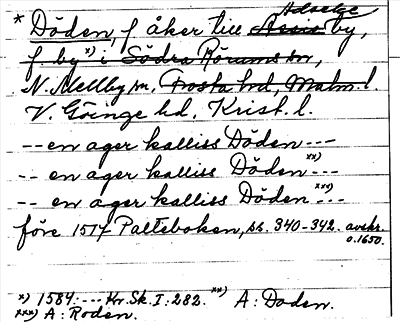 Adseke
* Döden, f åker till Assio by,
f. by x) i Södra Rörums sn,
N. Mellby sn, Frosta hd, Malm. l.
V. Göinge hd, Krist. l.
-- en ager kalliss Döden ---
-- en ager kalliss Döden xx) --
-- en ager kalliss Döden xxx) ---
före 1517 Palteboken, ss. 340-342. avskr.
o. 1650.
x) 1584: --- Kr. Sk. I: 282. xx) A: Doden.
xxx) A: Roden.